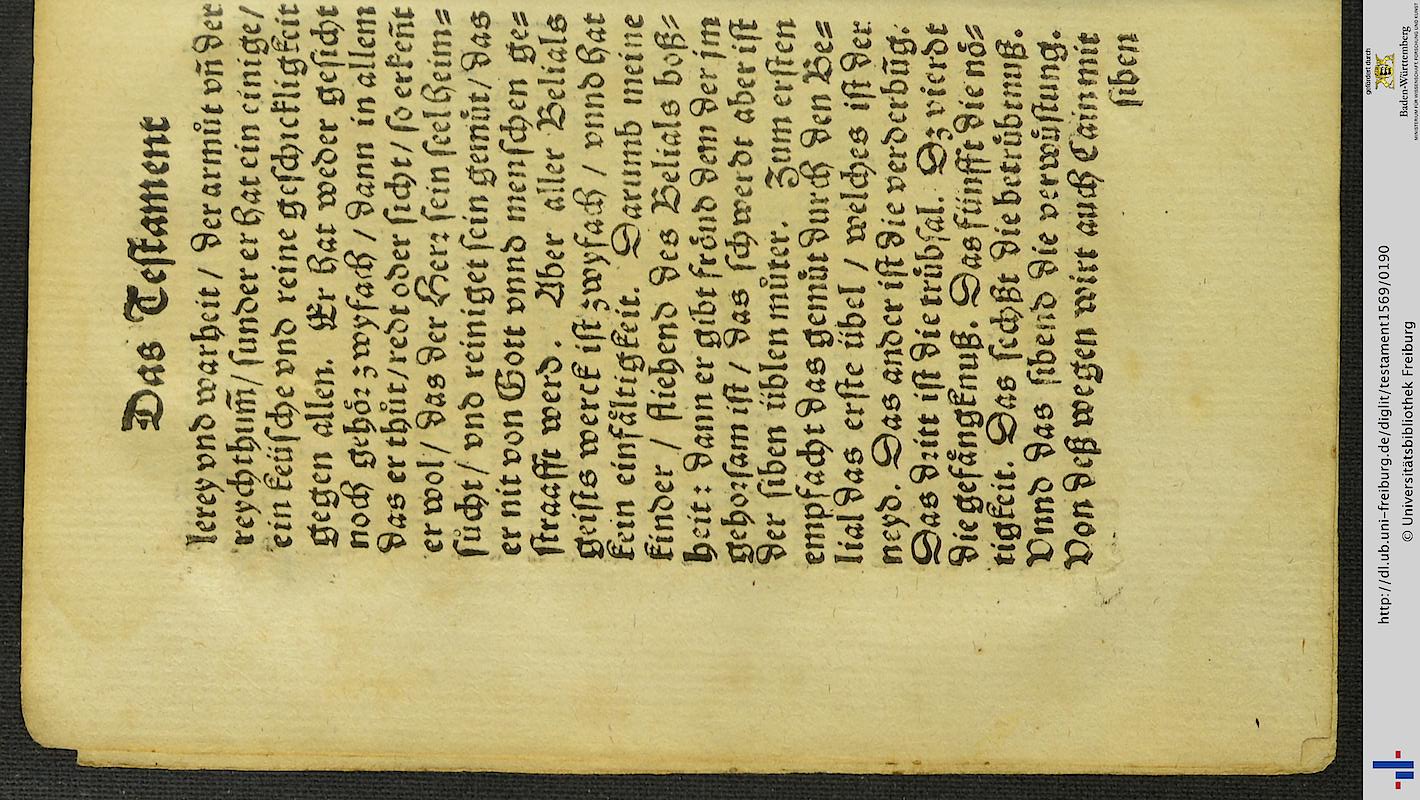 Das Testament
lerey vnd warheit / der armůt vñ der
reychthum̃ / sunder er hat ein einige /
ein keüsche vnd reine geschickligkeit
gegen allen. Er hat weder gesicht
noch gehör zwyfach / dann in allem
das er thůt / redt oder sicht / so erkeñt
er wol / das der Herr sein seel heim=
sůcht / vnd reiniget sein gemůt / das
er nit von Gott vnnd menschen ge=
straafft werd. Aber aller Belials
geists werck ist zwyfach / vnnd hat
kein einfältigkeit. Darumb meine
kinder / fliehend des Belials boß=
heit: dann er gibt fröud dem der jm
gehorsam ist / das schwerdt aber ist
der siben üblen můter. Zum ersten
empfacht das gemůt durch den Be=
lial das erste übel / welches ist der
neyd. Das ander ist die verderbũg.
Das dritt ist die trübsal. Dz vierdt
die gefängknuß. Das fünfft die nö=
tigkeit. Das sechßt die betrübtnuß.
Vnnd das sibend die verwüstung.
Von deß wegen wirt auch Cain mit
siben
gefördert durch
Baden-Württemberg
MINISTERIUM FÜR WISSENSCHAFT, FORSCHUNG UND KUNST
http://dl.ub.uni-freiburg.de/diglit/testament1569/0190
© Universitätsbibliothek Freiburg